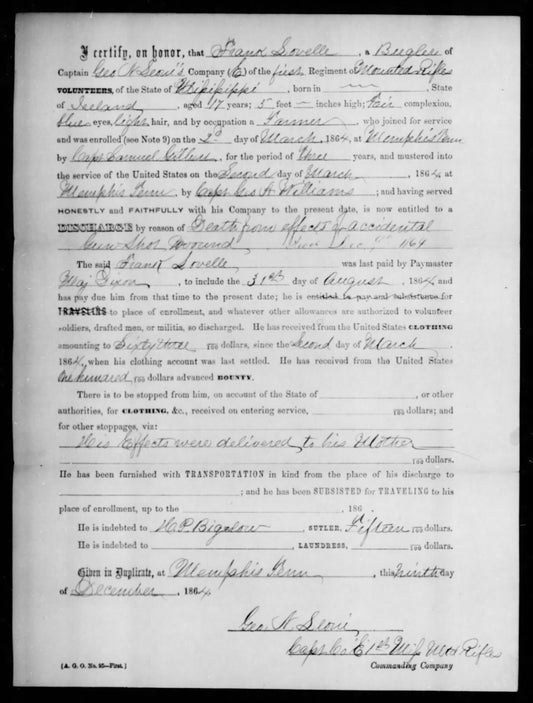 I certify, on honor, that Frank Lovelle, a Bugler of
Captain Geo N Leoni's Company (E) of the first Regiment of Mounted Rifles
VOLUNTEERS, of the State of Missisippi, born in , State
of Ireland, aged 17 years; 5 feet — inches high; Fair complexion.
blue eyes, light, hair, and by occupation a Farmer, who joined for service
and was enrolled (see Note 9) on the 2d day of March, 1864, at Memphis Tenn
by Capt Samuel , for the period of Three years, and mustered into
the service of the United States on the Second day of March, 1864 at
Memphis Tenn, by Capt Geo A Williams; and having served
HONESTLY and FAITHFULLY with his Company to the present date, is now entitled to a
DISCHARGE by reason of Death from effects of accidental
Gun Shot Wound Dec 1864
The said Frank Lovelle was last paid by Paymaster
Maj Dixon, to include the 31st day of August, 1864 and
has pay due him from that time to the present date; he is entitled to pay and subsistence for
TRAVELING to place of enrollment, and whatever other allowances are authorized to volunteer
soldiers, drafted men, or militia, so discharged. He has received from the United States CLOTHING
amounting to Sixty three /100 dollars, since the Second day of March
1864, when his clothing account was last settled. He has received from the United States
One hundred /100 dollars advanced BOUNTY.
There is to be stopped from him, on account of the State of , or other
authorities, for CLOTHING, &c., received on entering service, /100 dollars; and
for other stoppages, viz:
His Effects were delivered to his Mother
/100 dollars.
He has been furnished with TRANSPORTATION in kind from the place of his discharge to
; and he has been SUBSISTED for TRAVELING to his
place of enrollment, up to the , 186
He is indebted to H.P. Bigelow, SUTLER, Fifteen /100 dollars.
He is indebted to , LAUNDRESS, /100 dollars.
Given in Duplicate, at Memphis Tenn, this ninth day
of December, 1864
Geo. N. Leoni
Capt Co E 1st Mis Mtd Rifles
[A. G. O. No. 95—First.] Commanding Company